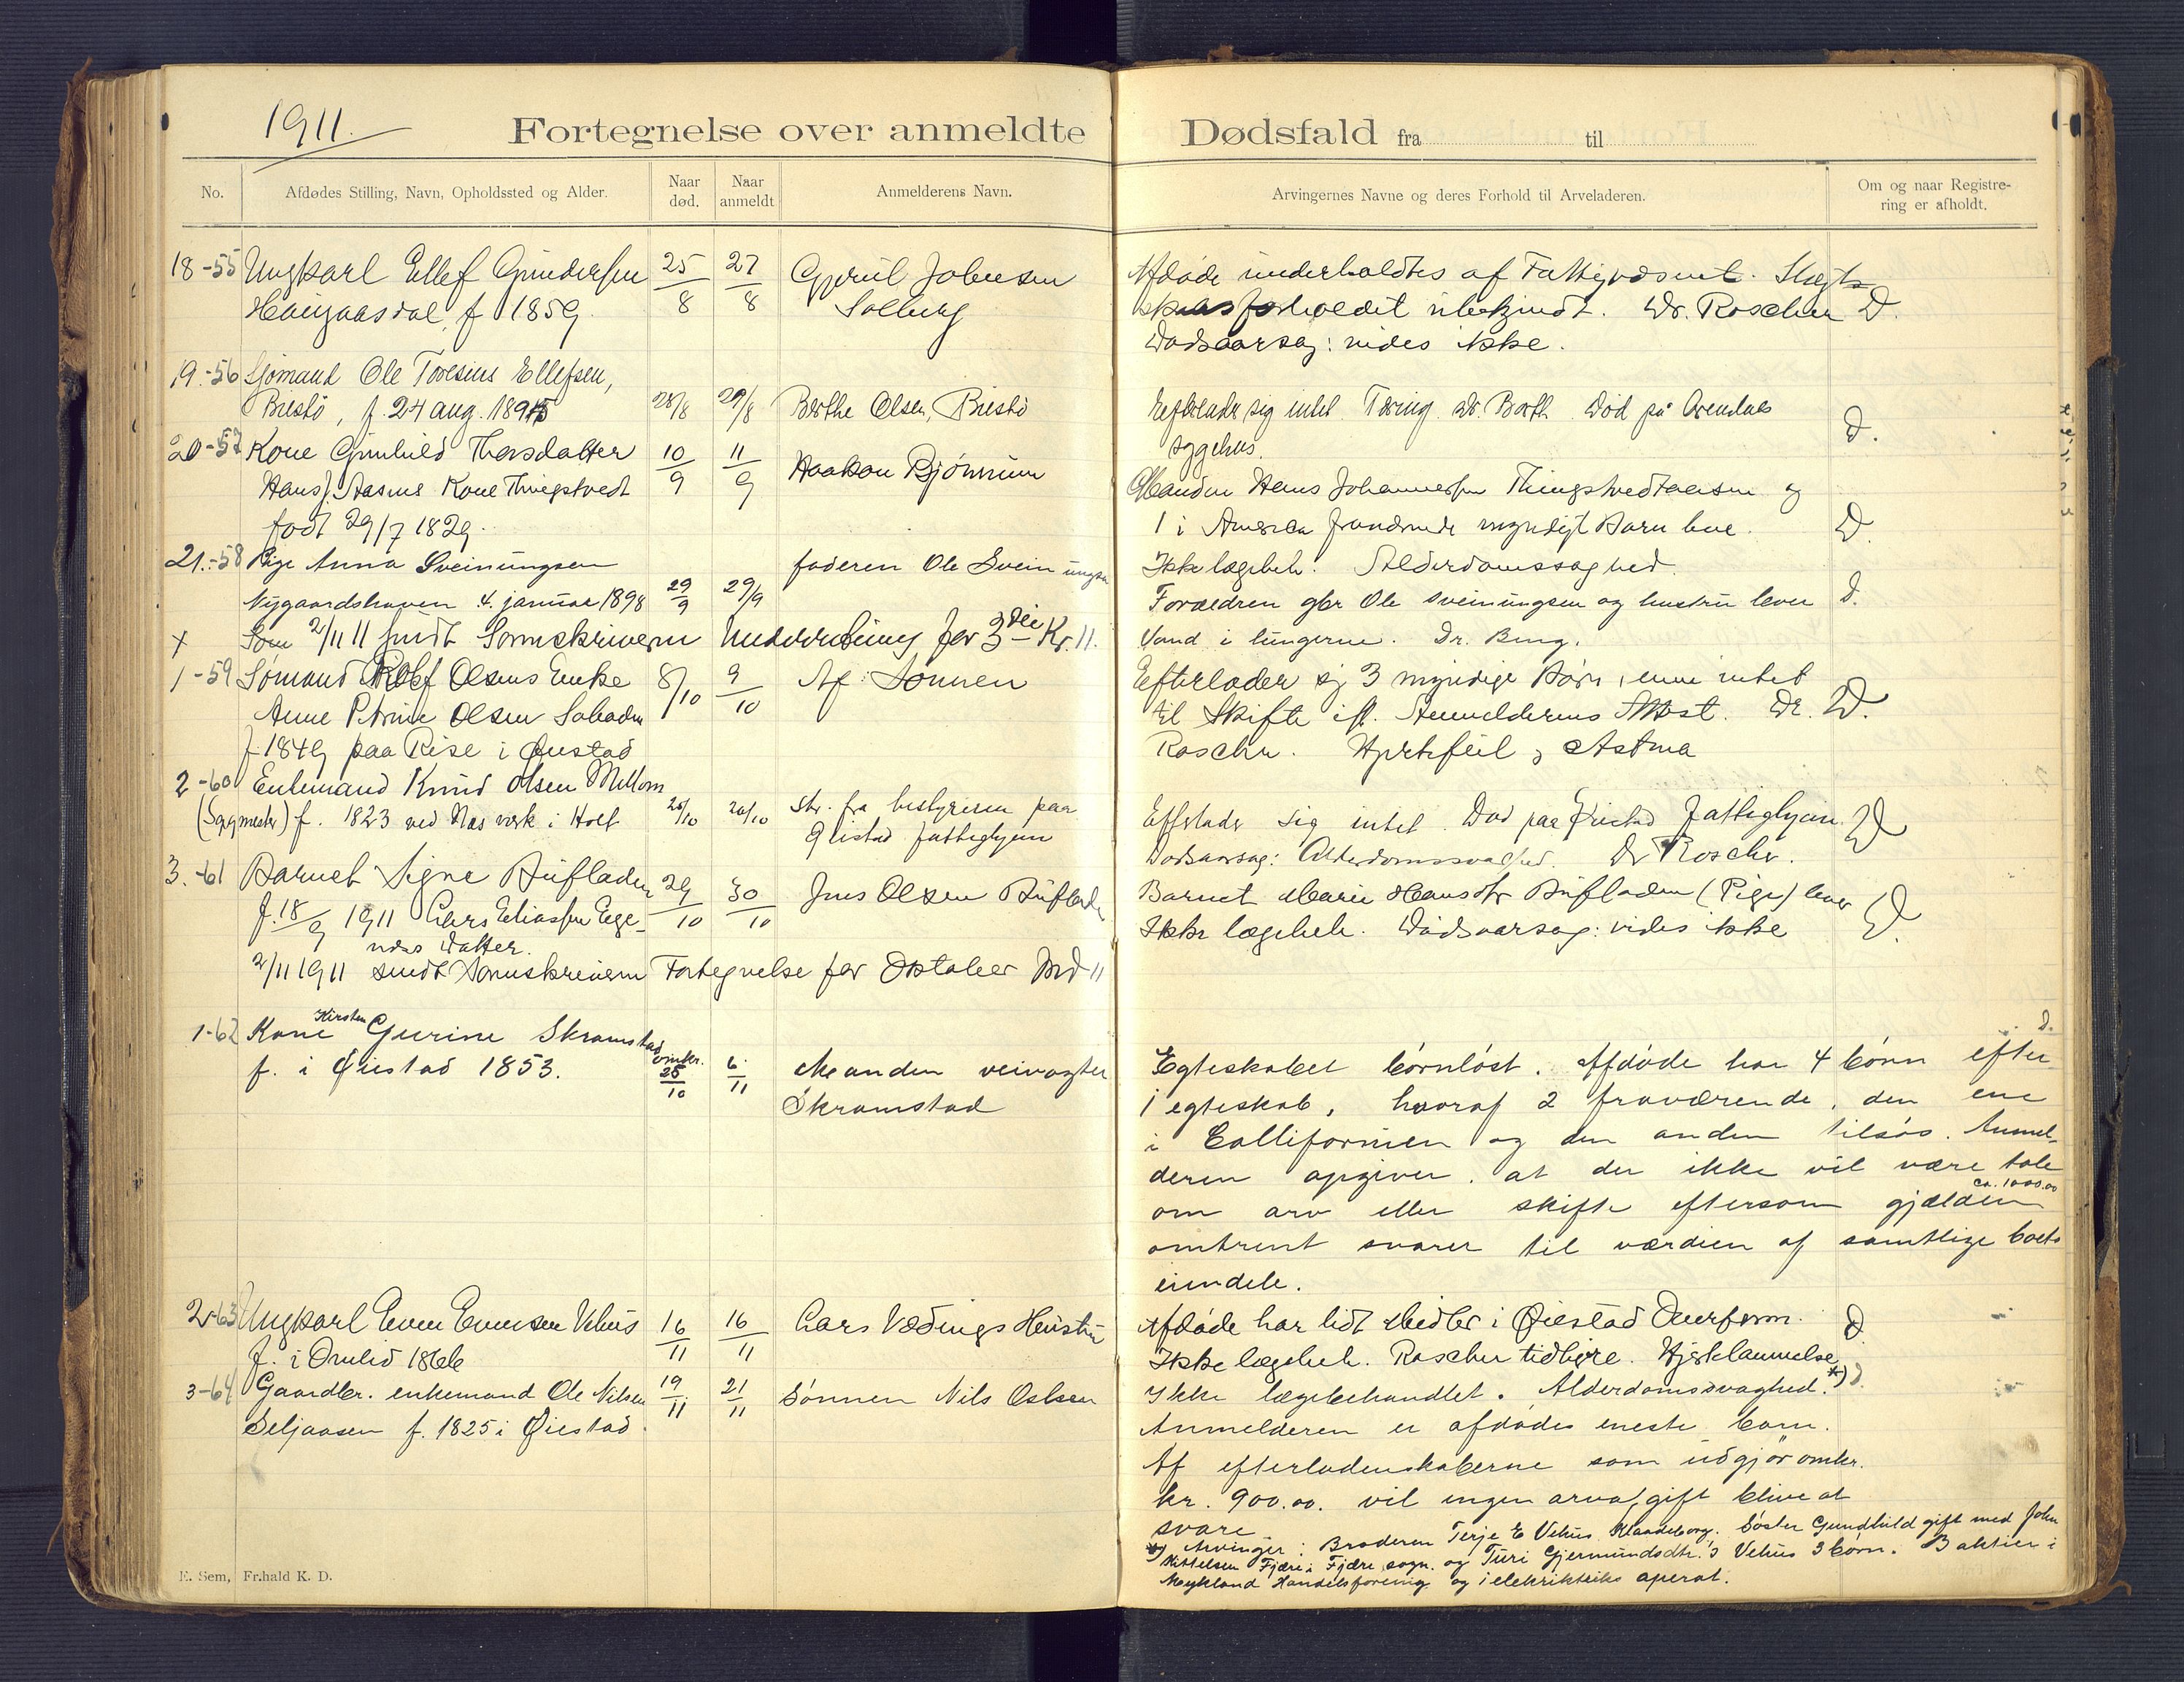 1911.
Fortegnelse over anmeldte Dødsfald fra til
No.
Afdødes Stilling, Navn, Opholdssted og Alder.
Naar død.
Naar anmeldt
Anmelderens Navn.
Arvingernes Navne og deres Forhold til Arveladeren.
Om og naar Registrering er afholdt.
18-55 Ungkarl Ellef Gundersen 25/8 27/8 Johnsen
f 1859. Solberg
Afdøde underholdtes af Fattigvæsenet. Slægt-
skabsforholdet ubekjendt. Dr. Roscher D.
Dødsaarsag: vides ikke.
19.-56 Sjømand Ole Toresius Ellefsen,
f. 24 aug. 1895 28/8 29/8 Berthe Olsen,
Efterlader sig intet. Tæring. Dr. Borth. Død på Arendals D.
sygehus.
20-57 Kone Gunhild Thorsdatter 10/9 11/9 Haakon Bjønnum
Hans J. Aasens Kone Thingstvedt
født 29/7 1829.
Manden Hans Johannessen Thingstvedtaasen og
1 i America fraværende myndigt Barn leve. D.
Ikke lægebeh. Alderdomssvaghed.
21.-58 Pige Anna Sveinungsen faderen Ole Sveinungsen
Nygaardshaven 4. januar 1898 29/9 29/9
Forældren gbr Ole Sveinungsen og hustru lever D.
Vand i lungerne. Dr. Beng.
x 2/11 11 sendt Sorenskriveren Underretning for 3die Kv. 11.
1-59 Sømand Olsens Enke 8/10 9/10 Af Sønnen
Anne Petrine Olsen
f 1849 paa Rise i Øiestad
Efterlader sig 3 myndige Børn, men intet
til Skifte ifl. Anmelderens Dr. D.
Roscher. Hjertefeil og Astma
2-60 Enkemand Knud Olsen Mellom
f. 1823 ved Næs værk i Holt 20/10 20/10 Skr. fra bestyreren paa
Øiestad fattighjem
Efterlader sig intet. Død paa Øiestad Fattighjem. D
Dødsaarsag: Alderdomssvaghed. Dr Roscher.
3.-61 Barnet Signe Bufladen 29/10 30/10 Jens Olsen Bufladen
f. 18/9 1911 Lars Eliassen Ege-
næs Datter.
Barnet Marie Hansdtr Bufladen (Pige) lever D.
Ikke lægebeh. Dødsaarsag: vides ikke
2/11 1911 sendt Sorenskriveren Fortegnelse for Oktober Md 11
1-62 Kone Kirsten Gurine Skramstad
f. i Øiestad 1853. omkr. 25/10 6/11 Manden veivogter
Skramstad
D.
Egteskabet børnløst. Afdøde har 4 børn efter
1 egteskab, hvoraf 2 fraværende, den ene
i Calliformien og den anden tilsøs. Anmel-
deren opgiver, at der ikke vil være tale
om arv eller skifte eftersom gjælden ca. 1000.00
omtrent svarer til værdien af samtlige boets
eiendele.
2-63 Ungkarl Even Evensen Vehus 16/11 16/11 Lars Vedings Hustru
f. i Omlid 1866
Afdøde har lidt Midler i Øiestad D
Ikke lægebeh. Roscher tidligere. Hjertelammelse *)
3-64 Gaardbr. enkemand Ole Nilsen 19/11 21/11 Sønnen Nils Oslsen
Seljaasen f. 1825 i Øiestad.
Ikke lægebehandlet. Alderdomssvaghed. D.
Anmelderen er afdødes eneste barn.
Af efterladenskaberne som udgjør omkr.
kr. 900.00. vil ingen arvafgift blive at
svare
*) Arvinger: Broderen Terje E Vehus Klaadeborg. Søster Gundhild gift med John
Kittelsen Fjære i Fjære sogn. og Turi Gjermundsdtr. i Vehus 3 børn. 3 aktier i
Mykland Handelsforening og i elektriktriks aperat.
E. Sem, Fr.hald K. D.